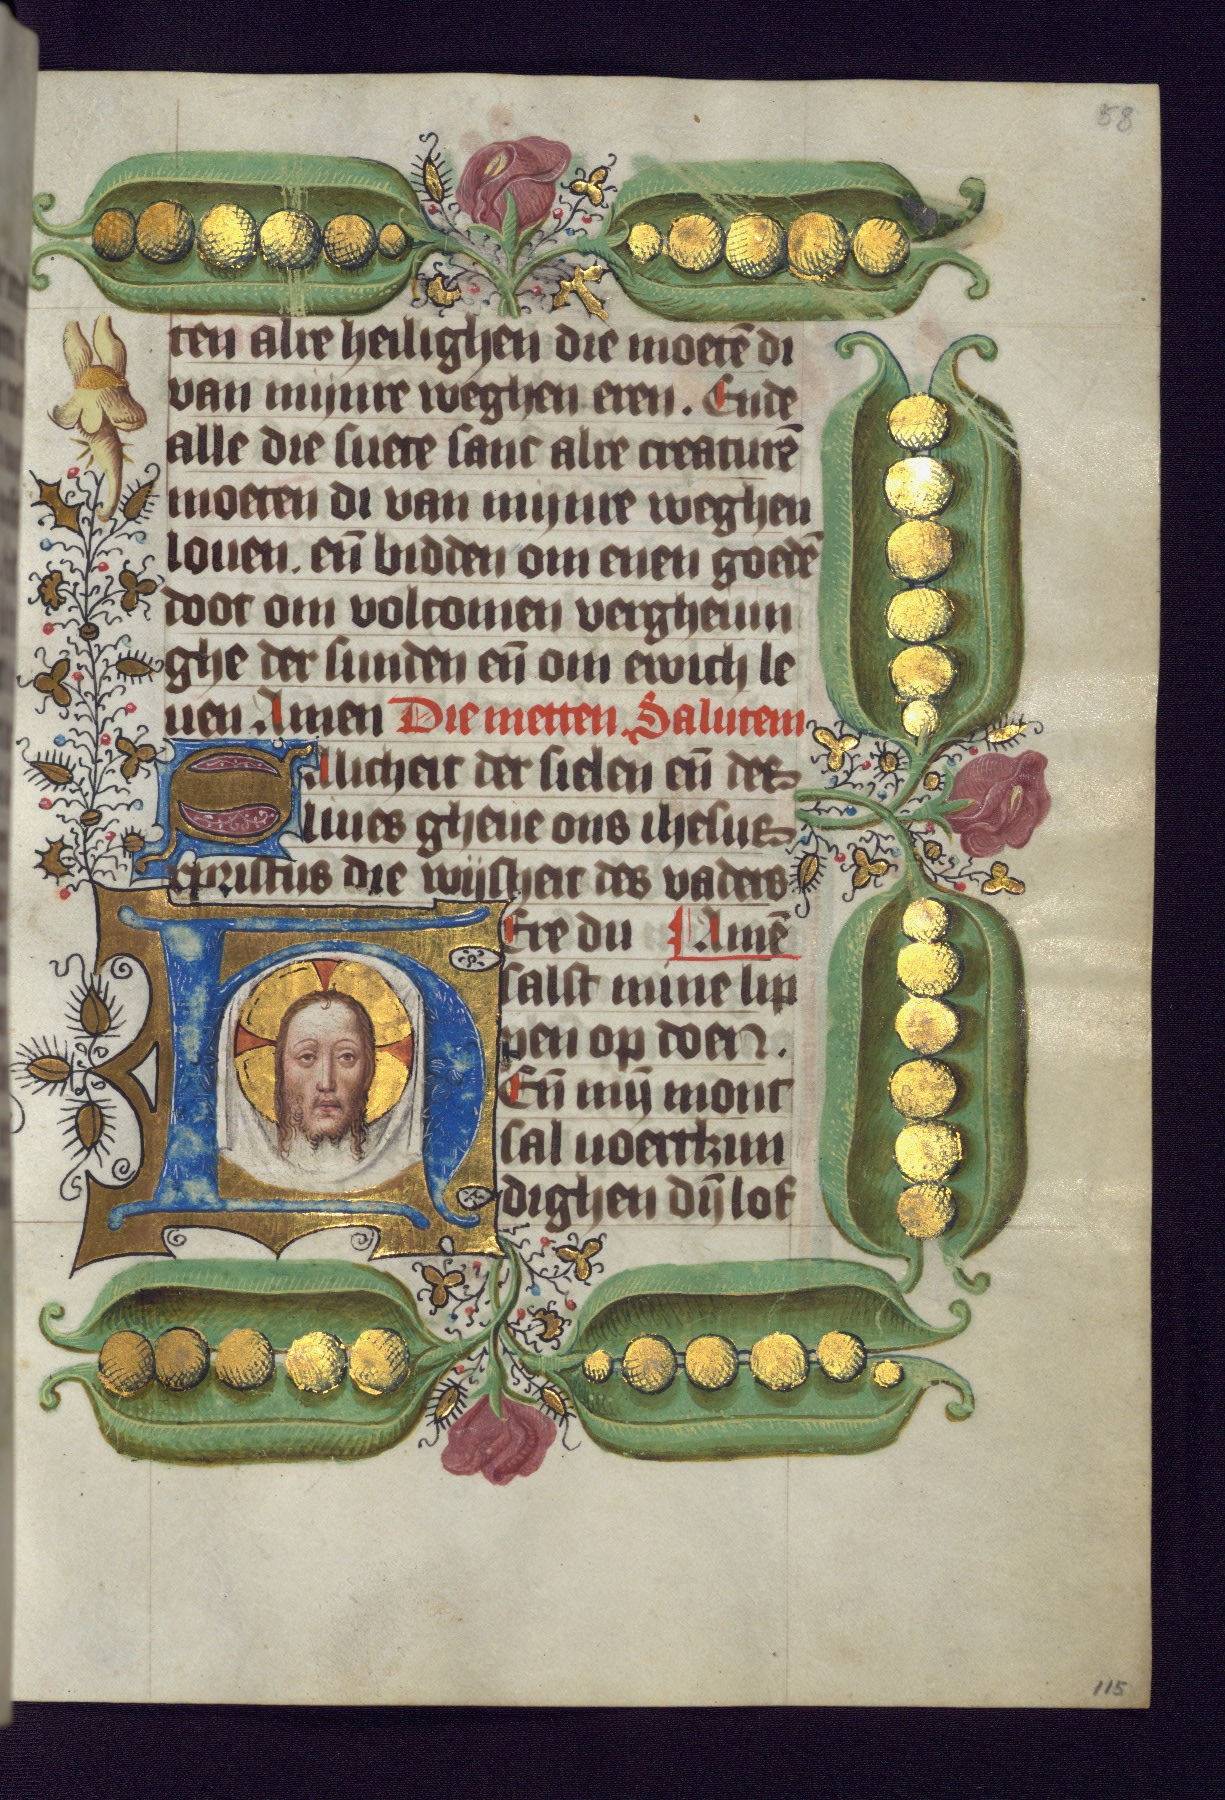 58
ten alre heilighen die moetē di
van mijnre weghen eren. Ende
alle die suete sanc alre creaturē
moeten di van mijnre weghen
louen. eñ bidden om enen goedē
doot om volcomen vergheuin
ghe der sunden eñ om ewich le
uen Amen Die metten. Salutem
Salicheit der sielen eñ des
liues gheue ons ihesus
cpristus die wijsheit des vaders
HEre du Amē
salst mine lip
pen op doen.
Eñ mij mont
sal uoertkun
dighen dij lof
115